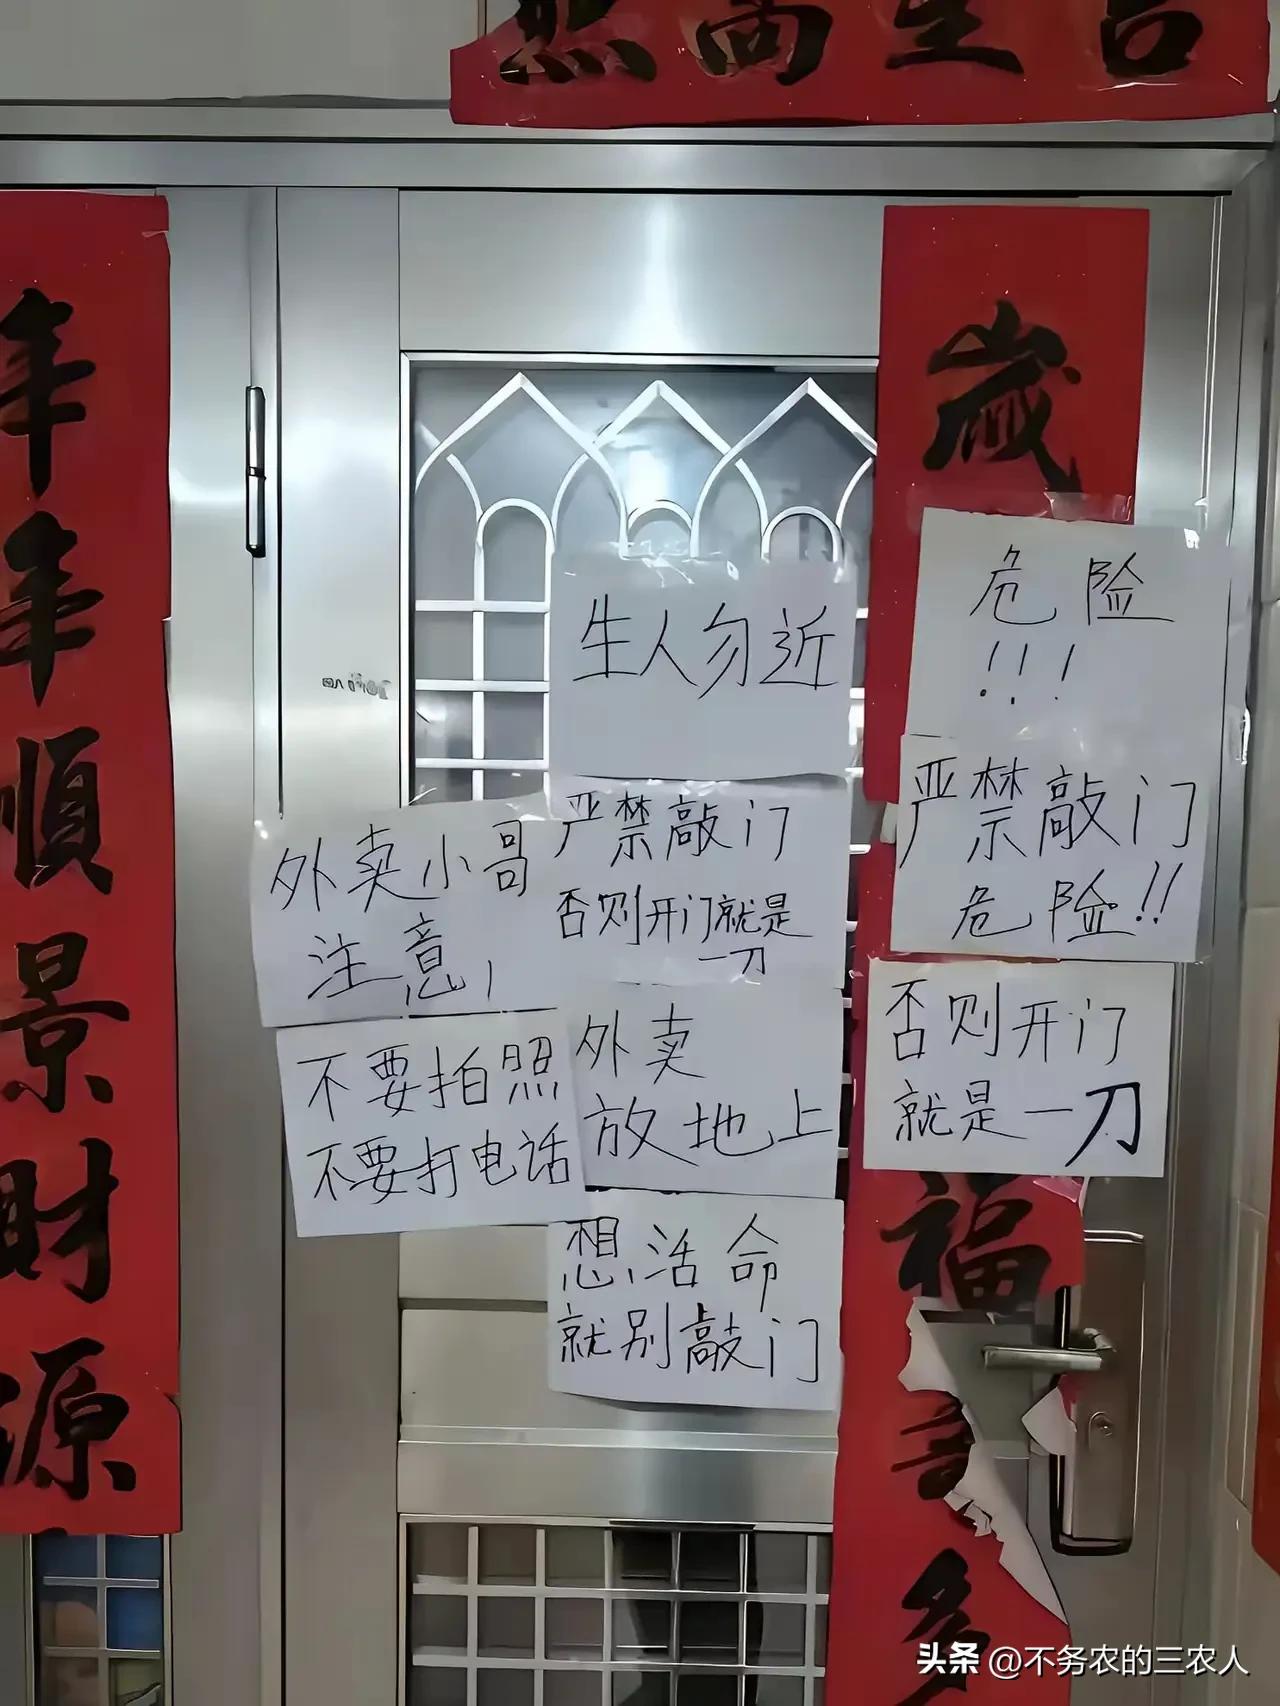 照高星吉
年年順景財源
歲
福
多
生人勿近
危险
!!!
严禁敲门
危险!!
否则开门
就是一刀
外卖小哥
注意!
严禁敲门
否则开门就是
一刀
不要拍照
不要打电话
外卖
放地上
想活命
就别敲门
头条 @不务农的三农人